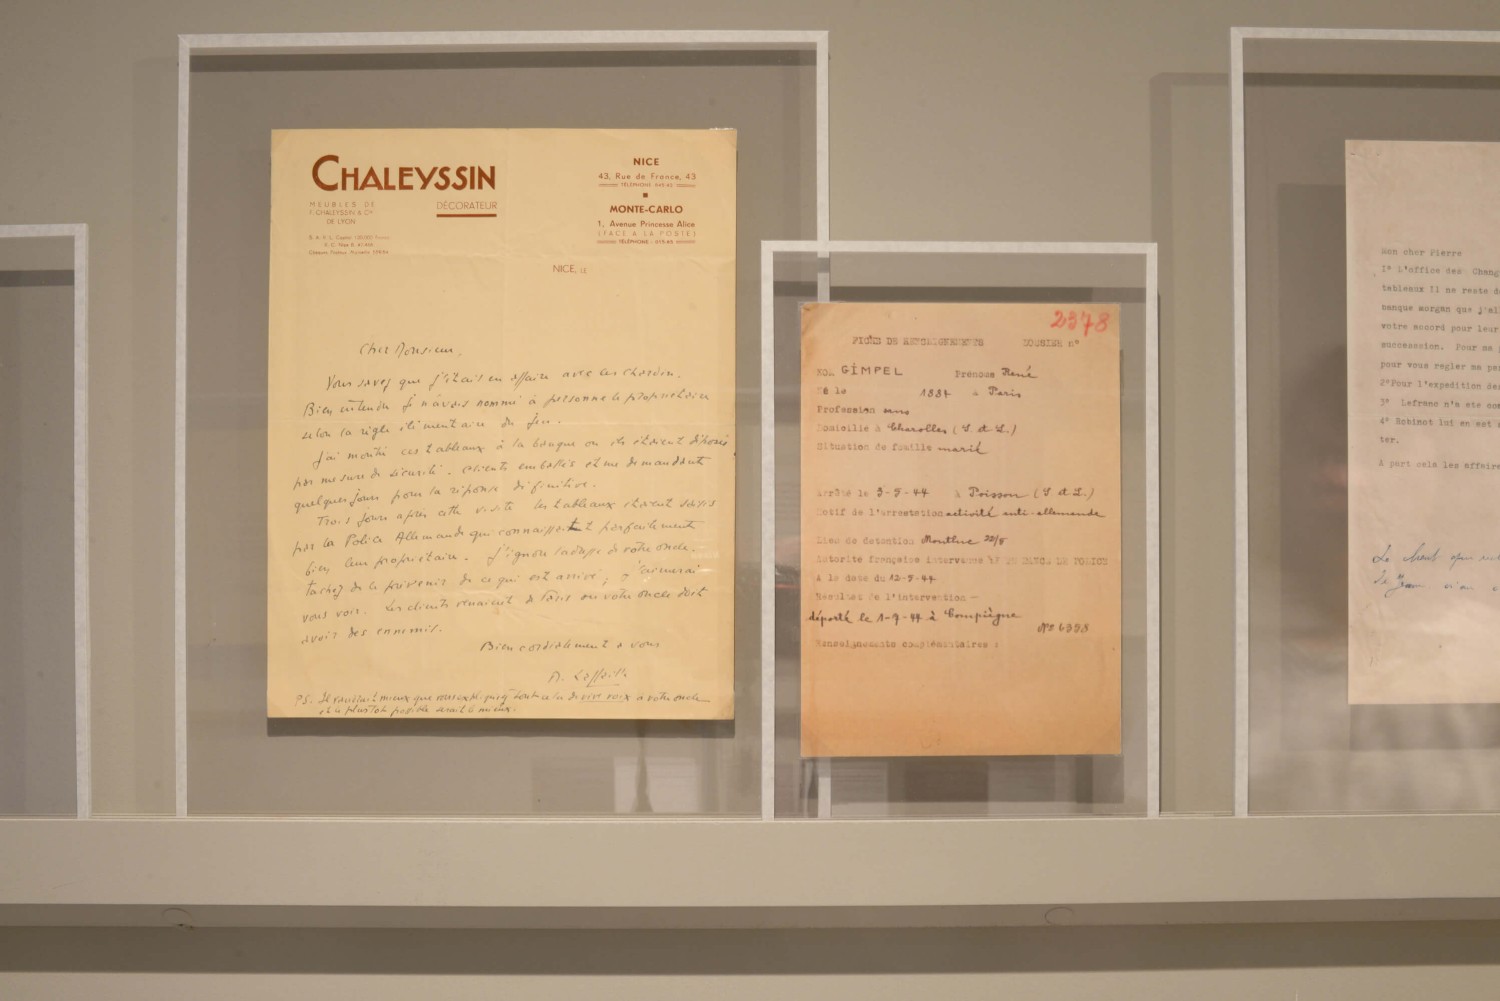 CHALEYSSIN
MEUBLES DE
F. CHALEYSSIN & Cie
DE LYON
DÉCORATEUR
NICE
43, Rue de France, 43
TÉLÉPHONE
MONTE-CARLO
1, Avenue Princesse Alice
(FACE A LA POSTE)
TÉLÉPHONE
NICE, LE
Cher Monsieur,
Vous savez que j'étais en affaire avec les chardin.
Bien entendu je n'avais nommé à personne le propriétaire
selon la règle élémentaire du jeu.
J'ai montré ces tableaux à la banque où ils étaient déposés
par mesure de sécurité. Clients emballés et me demandant
quelques jours pour la réponse définitive.
Trois jours après cette visite les tableaux étaient saisis
par la Police Allemande qui connaissait parfaitement
bien leur propriétaire. J'ignore l'adresse de votre oncle.
tachez de le prévenir de ce qui est arrivé ; j'aimerai
vous voir. Les clients venaient de Paris où votre oncle doit
avoir des ennemis.
Bien cordialement à vous
P.S. Il vaudrait mieux que vous expliquiez tout cela de vive voix à votre oncle
et le plus tôt possible serait le mieux.
2378
FICHE DE RENSEIGNEMENTS DOSSIER n°
NOM GIMPEL Prenoms René
Né le 1881 à Paris
Profession sans
Domicilié à Charolles (S. et L.)
Situation de famille marié
Arrêté le 5-5-44 à Poisson (S. et L.)
Motif de l'arrestation activité anti-allemande
Lieu de detention Montluc 22/5
Autorité française intervenue
A la date du 12-5-44
Resultat de l'intervention -
déporté le 1-7-44 à Compiègne
N°
Renseignements complémentaires :
Mon cher Pierre
1° L'office des Chang
tableaux Il ne reste
banque morgan que j'al
votre accord pour leur
succession. Pour ma
pour vous regler ma
2°Pour l'expedition des
3° Lefranc n'a ete
4° Robinot lui en est
ter.
A part cela les affaire